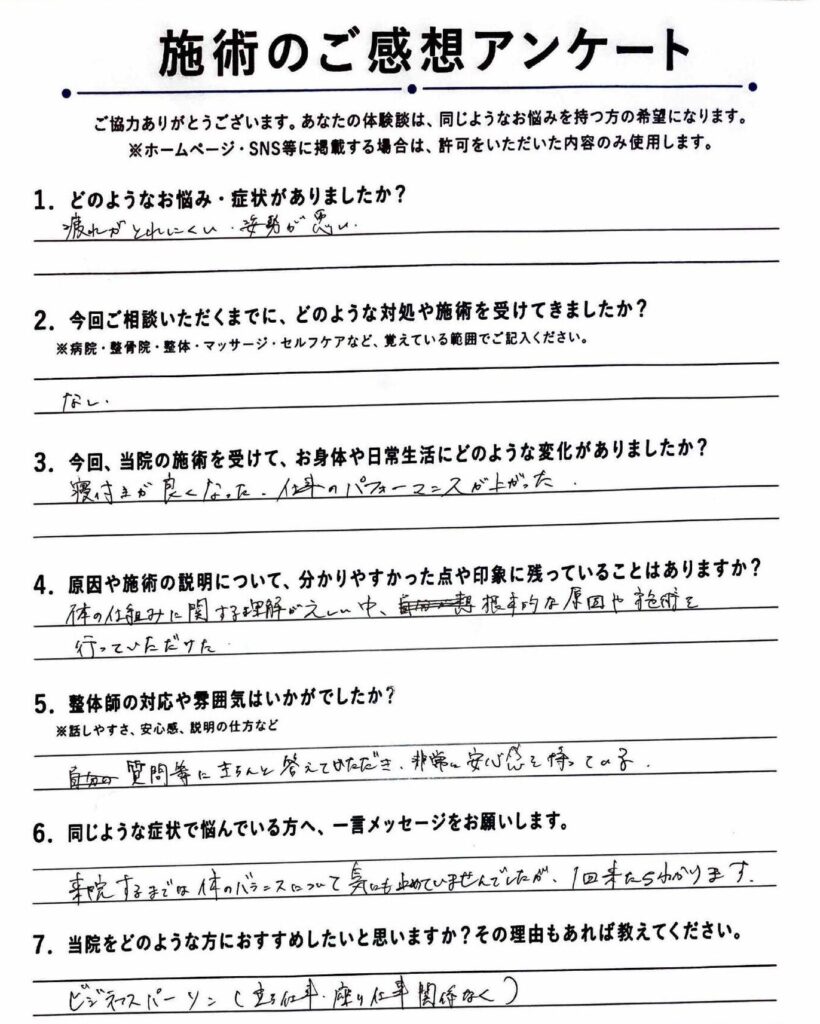 施術のご感想アンケート
ご協力ありがとうございます。あなたの体験談は、同じようなお悩みを持つ方の希望になります。
※ホームページ・SNS等に掲載する場合は、許可をいただいた内容のみ使用します。
1. どのようなお悩み・症状がありましたか？
疲れがとれにくい．姿勢が悪い．
2. 今回ご相談いただくまでに、どのような対処や施術を受けてきましたか？
※病院・整骨院・整体・マッサージ・セルフケアなど、覚えている範囲でご記入ください。
なし．
3. 今回、当院の施術を受けて、お身体や日常生活にどのような変化がありましたか？
寝付きが良くなった．仕事のパフォーマンスが上がった．
4. 原因や施術の説明について、分かりやすかった点や印象に残っていることはありますか？
体の仕組みに関する理解が乏しい中、根本的な原因や施術を
行っていただけた．
5. 整体師の対応や雰囲気はいかがでしたか？
※話しやすさ、安心感、説明の仕方など
質問等にきちんと答えていただき、非常に安心感を持っている．
6. 同じような症状で悩んでいる方へ、一言メッセージをお願いします。
来院するまでは体のバランスについて気にも止めていませんでしたが、1回来たら分かります．
7. 当院をどのような方におすすめしたいと思いますか？その理由もあれば教えてください。
ビジネスパーソン（立ち仕事・座り仕事関係なく）